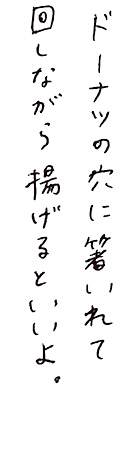 ドーナツの穴に箸いれて
回しながら揚げるといいよ。